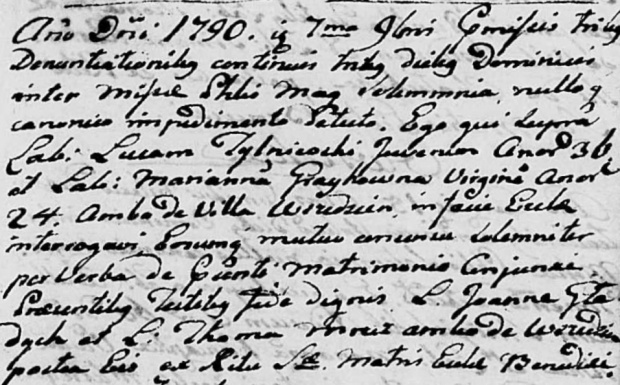 Año Dni 1790. ig 7ma Xbris Pmissis tribq
Denuntiationibq continuis tribq diebq Dominicis
inter Missae Phlis Mag solemnia, nulloq
canonico impedimento detecto. Ego qui supra
Lab: Lucam Tylnicocki Juvenem Anor 36
et Lab: Mariannā Graykowna Virginē Anor
24 Ambo de Villa in facie Eccla
interrogavi Eorumq mutuo consensu solemniter
per Verba de Psenti Matrimonio Conjunxi
Psentibq Testibq fide dignis L. Joanne Gła
dych et L. Thoma Mroz ambo de
postea Eis ex Ritu Sae. Matris Eccla Benedixi.